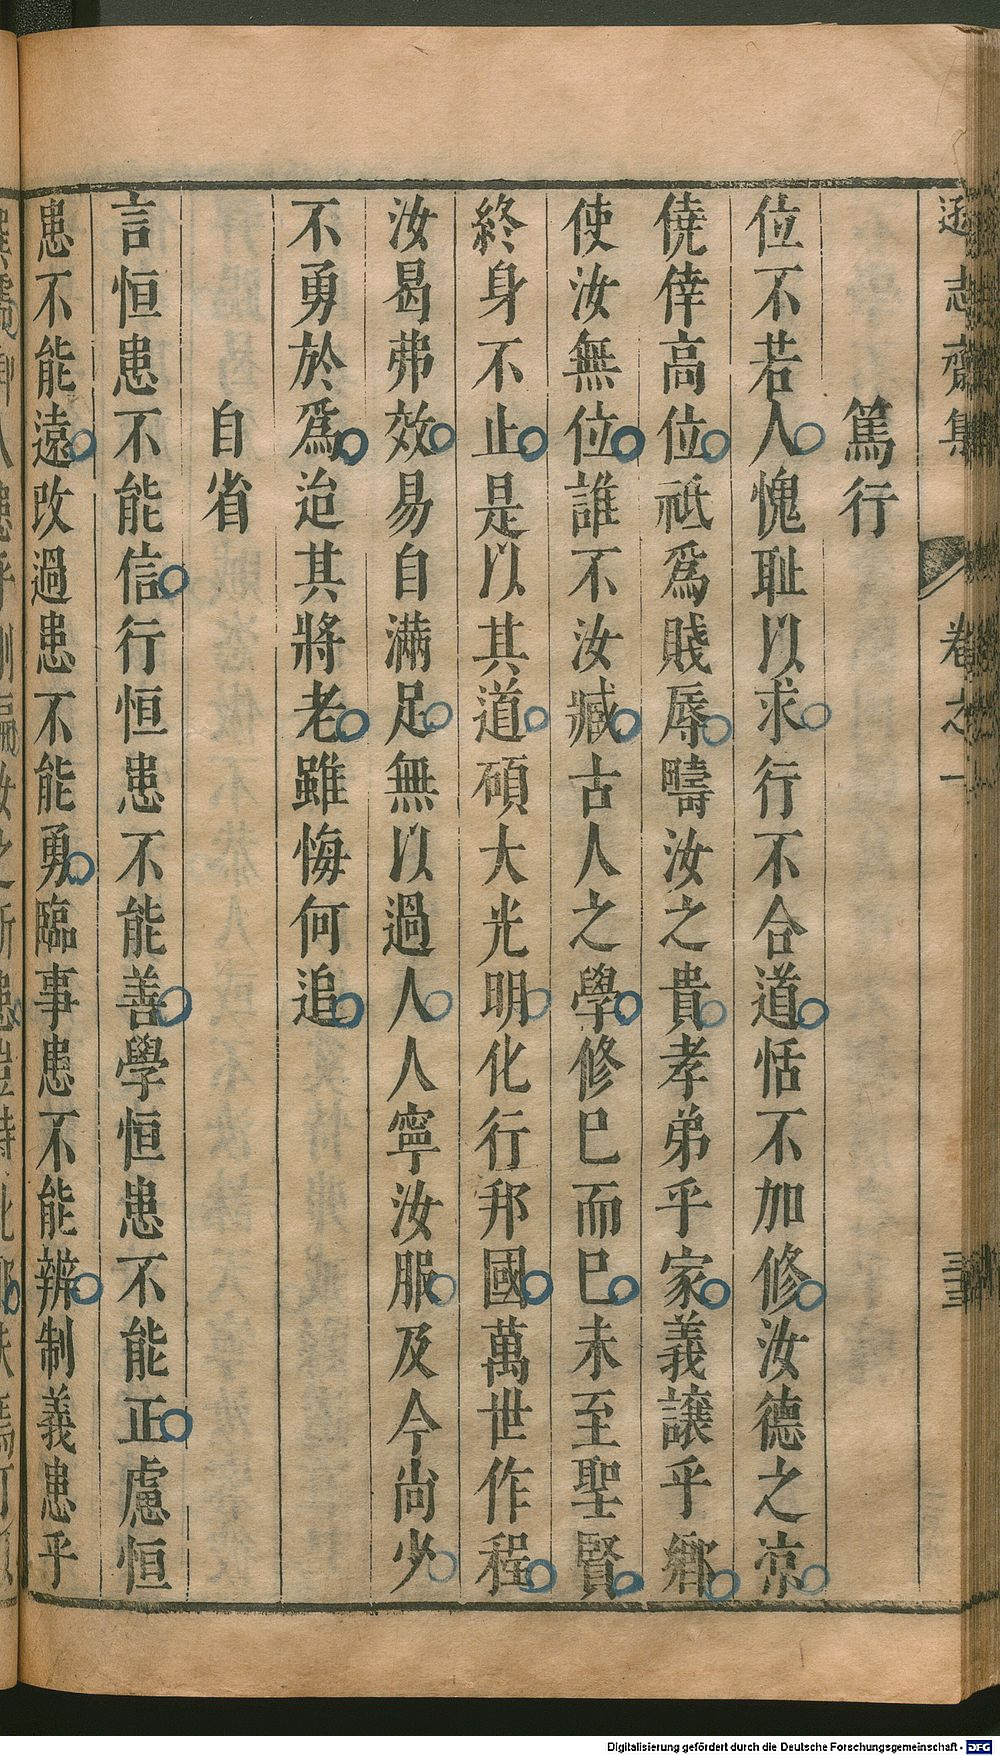 遜志齋集 卷之一 三三
篤行
位不若人愧耻以求行不合道恬不加修汝德之涼
僥倖高位祗爲賤辱疇汝之貴孝弟乎家義讓乎鄉
使汝無位誰不汝臧古人之學修巳而巳未至聖賢
終身不止是以其道碩大光明化行邦國萬世作程
汝曷弗效易自滿足無以過人人寧汝服及今尚少
不勇於爲迨其將老雖悔何追
自省
言恒患不能信行恒患不能善學恒患不能正慮恒
患不能遠改過患不能勇臨事患不能辨制義患乎
Digitalisierung gefördert durch die Deutsche Forschungsgemeinschaft - DFG